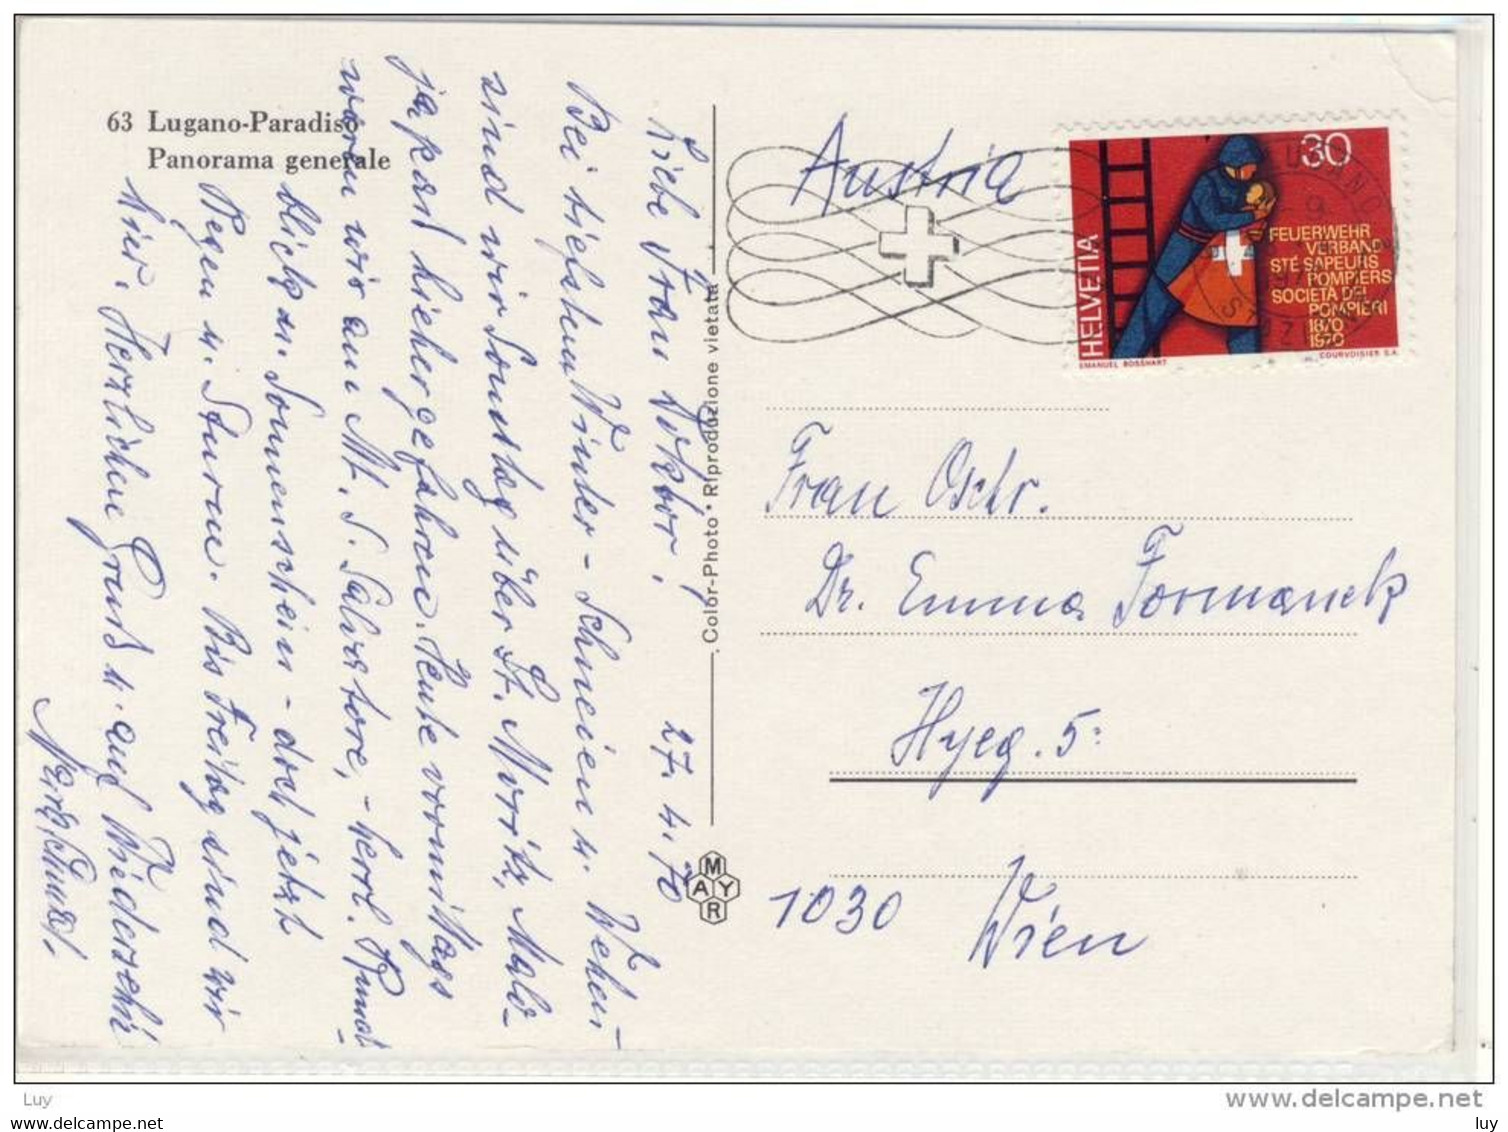 63 Lugano-Paradiso
Panorama generale
Liebe Frau Doktor!
27.4.70
Bei tiefstem Winter - Schneien u. Wehen -
sind wir Sonntag über St. Moritz, Mald-
ja part hiehergefahren. Heute vormittags
waren wir am Mt. S. Salvatore, - herrl. Rund-
blick an. Sonnenschein - doch jetzt
Regen u. Sturm. Bis Freitag sind wir
hier. Herzlichen Gruß u. auf Wiedersehn
Color-Photo • Riproduzione vietata
MAYR
Austria
30
FEUERWEHR
VERBAND
STÉ SAPEURS
POMPIERS
SOCIETÀ DEI
POMPIERI
1870
1970
HELVETIA
EMANUEL BOSSHART
COURVOISIER S.A.
LUGANO
Frau Oschr.
Dr. Emma Formanek
Hyeg. 5
1030 Wien
Luy
delcampe.net
luy